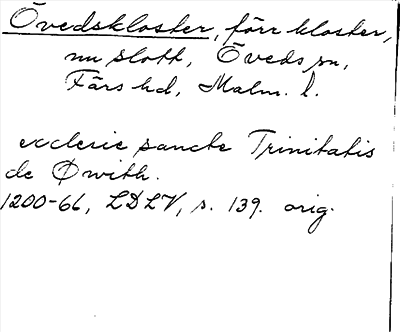 Övedskloster, förr kloster,
nu slott, Öveds sn,
Färs hd, Malm. l.
ecclesie sancte Trinitatis
de Øwith.
1200-66, LDLV, s. 139. orig.